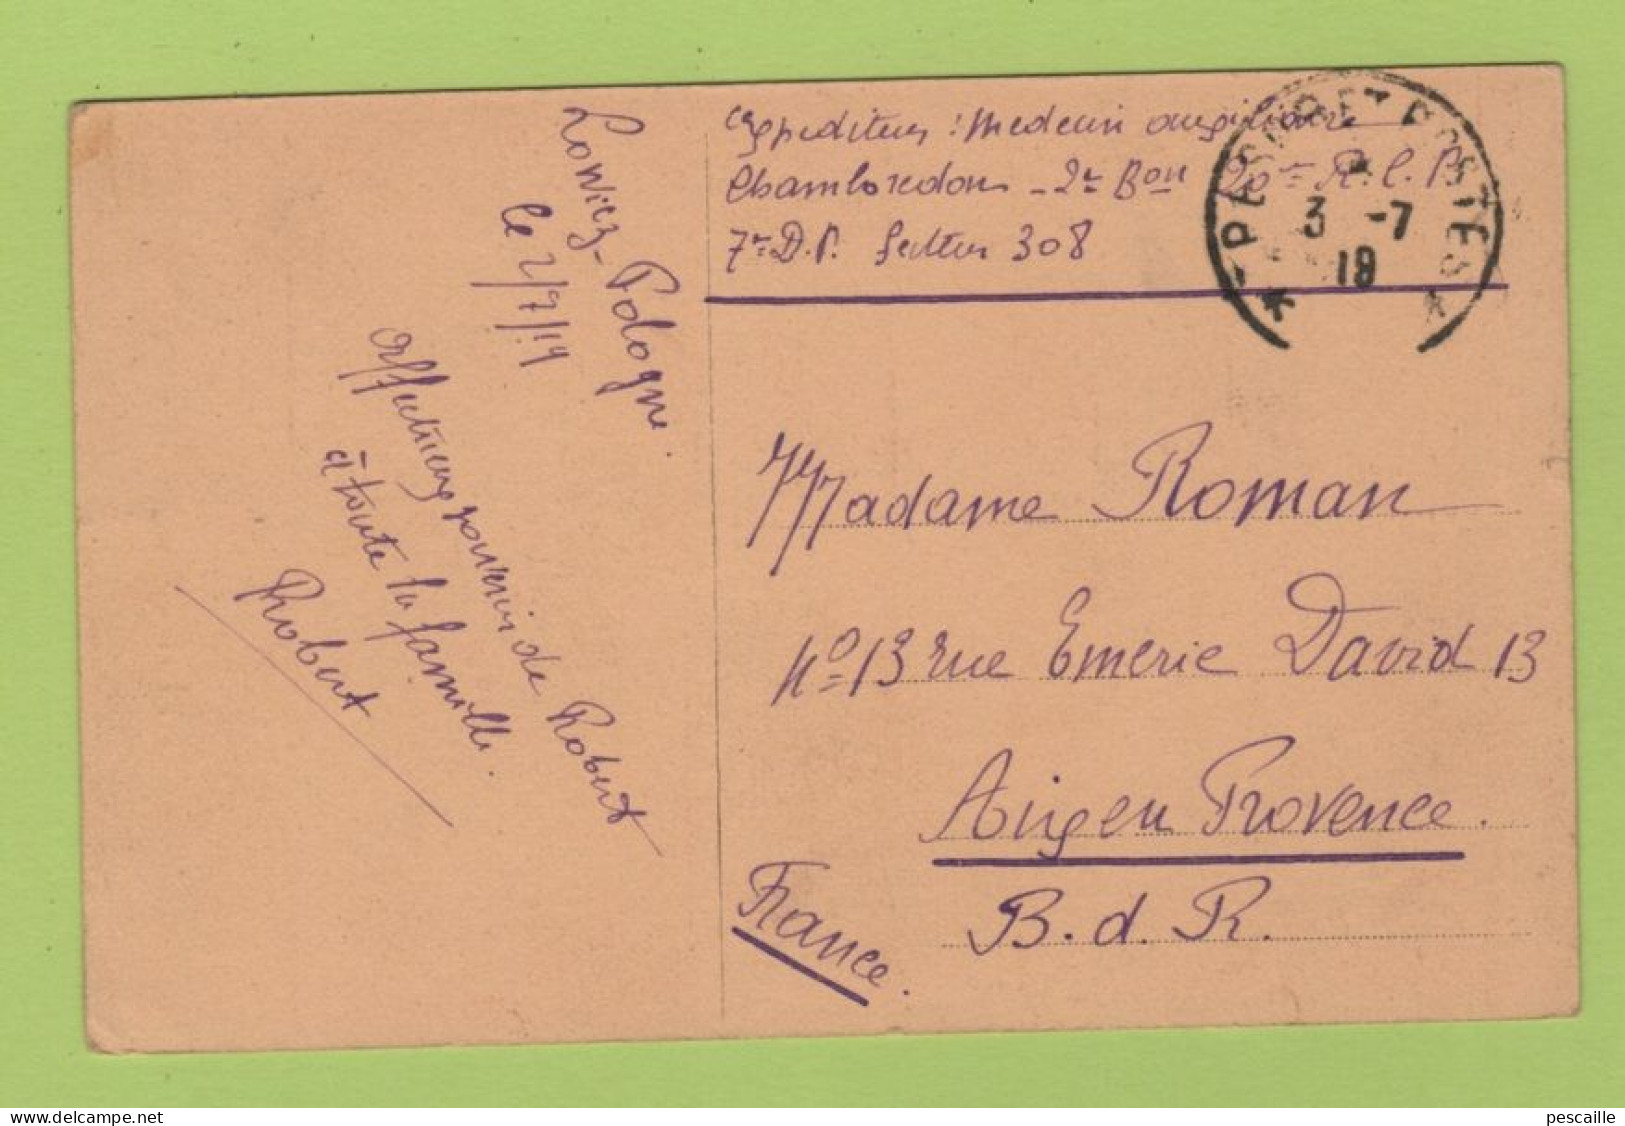 Expediteur : Medecin auxiliaire
Chamboredon - 2e Bon 26me R.C.P.
7me D.P. Secteur 308
TRESOR ET POSTES
3 -7
19
Lowicz - Pologne.
le 2/7/19
Affectueux souvenir de Robert
à toute la famille.
Robert
Madame Roman
No 13 rue Emeric David 13
Aix en Provence.
B. d. R.
France.
pescaille
www.delcampe.net